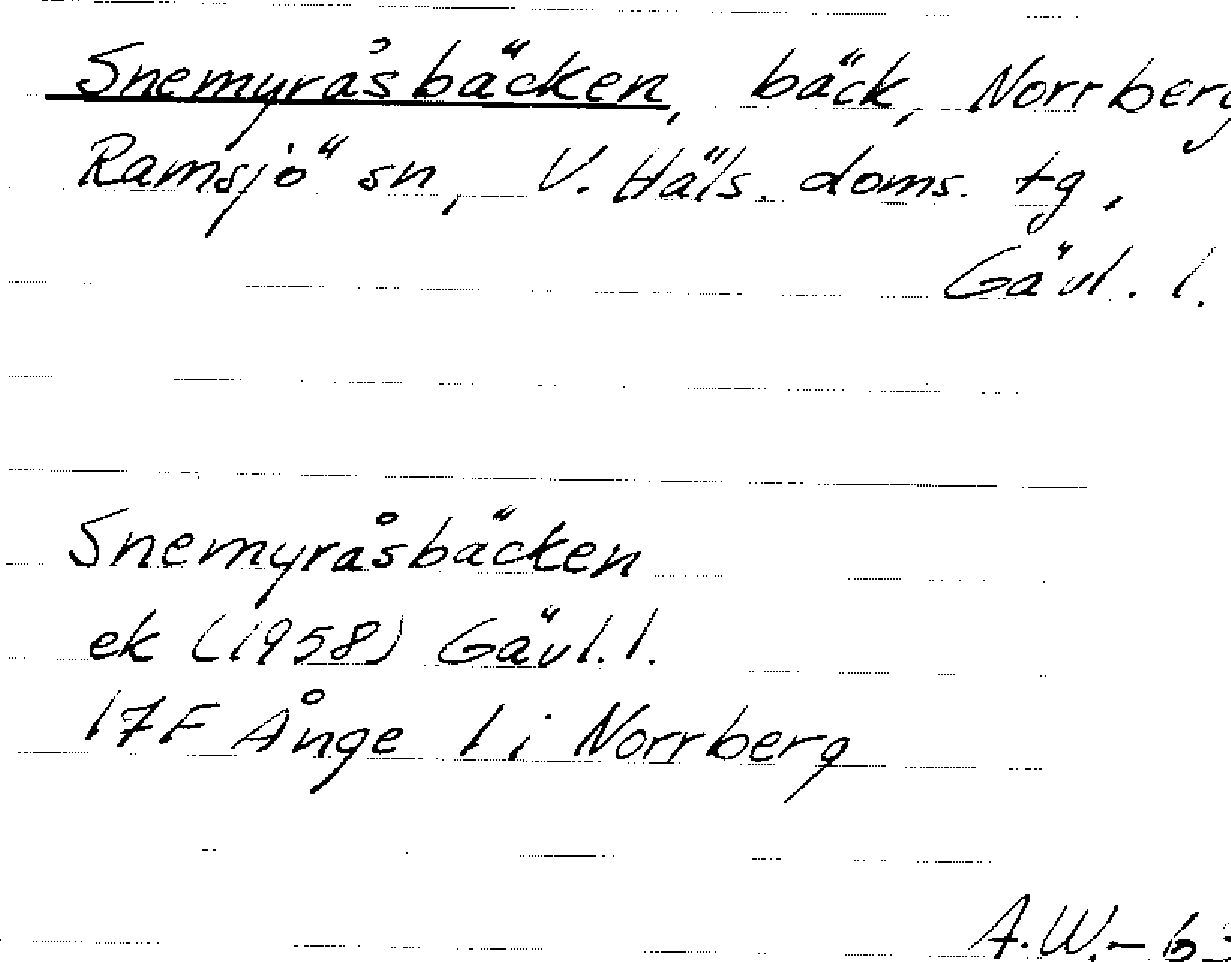 Snemyråsbäcken, bäck, Norrberg
Ramsjö sn, V. Häls. doms. tg,
Gävl. l.
Snemyråsbäcken
ek (1958) Gävl. l.
17F Ånge 1i Norrberg
A.W.-